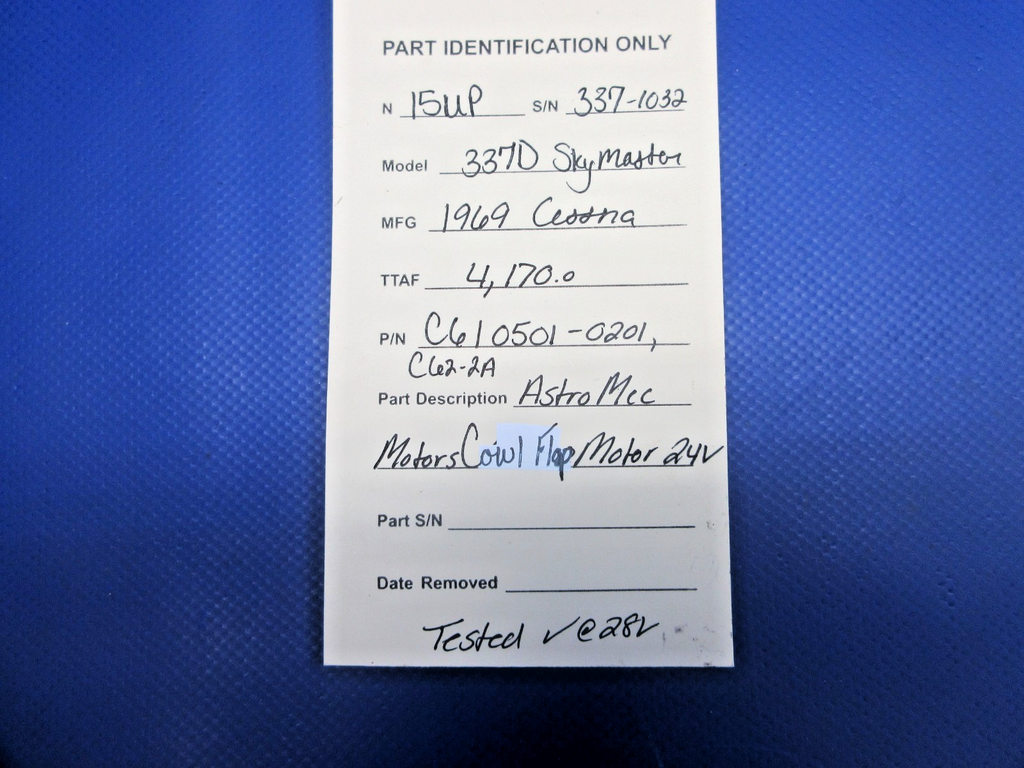 PART IDENTIFICATION ONLY
N 15UP S/N 337-1032
Model 337D SkyMaster
MFG 1969 Cessna
TTAF 4,170.0
P/N C610501-0201,
C62-2A
Part Description Astro Mec
Motors Cowl Flap Motor 24V
Part S/N
Date Removed
Tested ✓ @ 28V